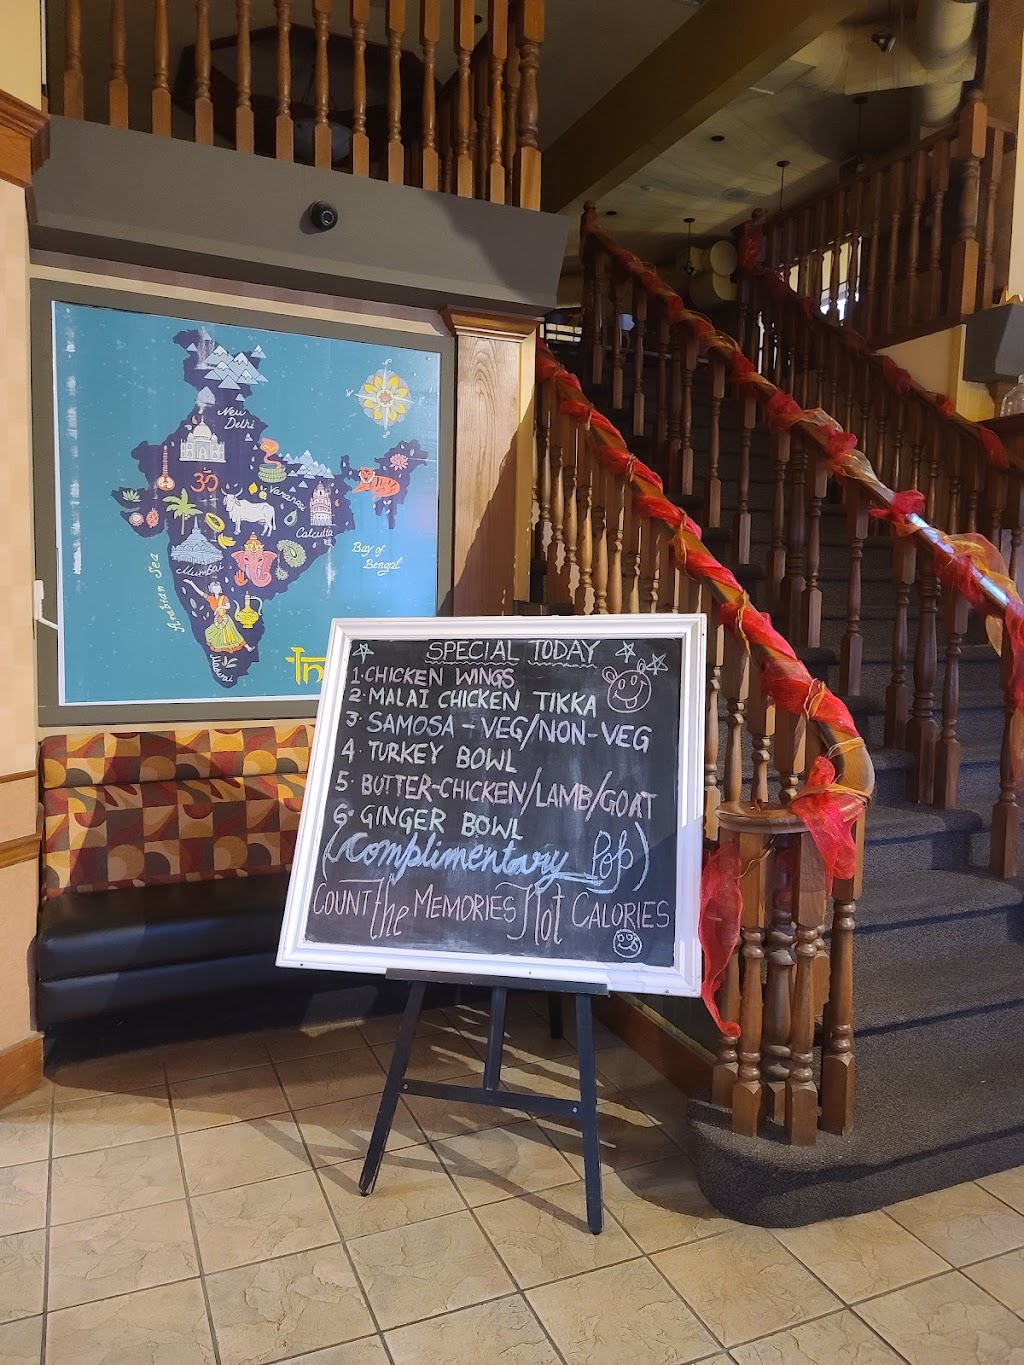 New
Delhi
ॐ
Varanasi
Calcutta
Mumbai
Bay of
Bengal
Arabian Sea
W
SPECIAL TODAY
1. CHICKEN WINGS
2. MALAI CHICKEN TIKKA
3. SAMOSA - VEG/NON-VEG
4. TURKEY BOWL
5. BUTTER-CHICKEN/LAMB/GOAT
6. GINGER BOWL
(Complimentary Pop)
COUNT the MEMORIES Not CALORIES